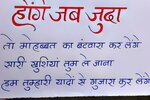 होंगे जब जुदा
तो मोहब्बत का बंटवारा कर लेंगे
सारी खुशियां तुम ले जाना
हम तुम्हारी यादों से गुजारा कर लेंगे